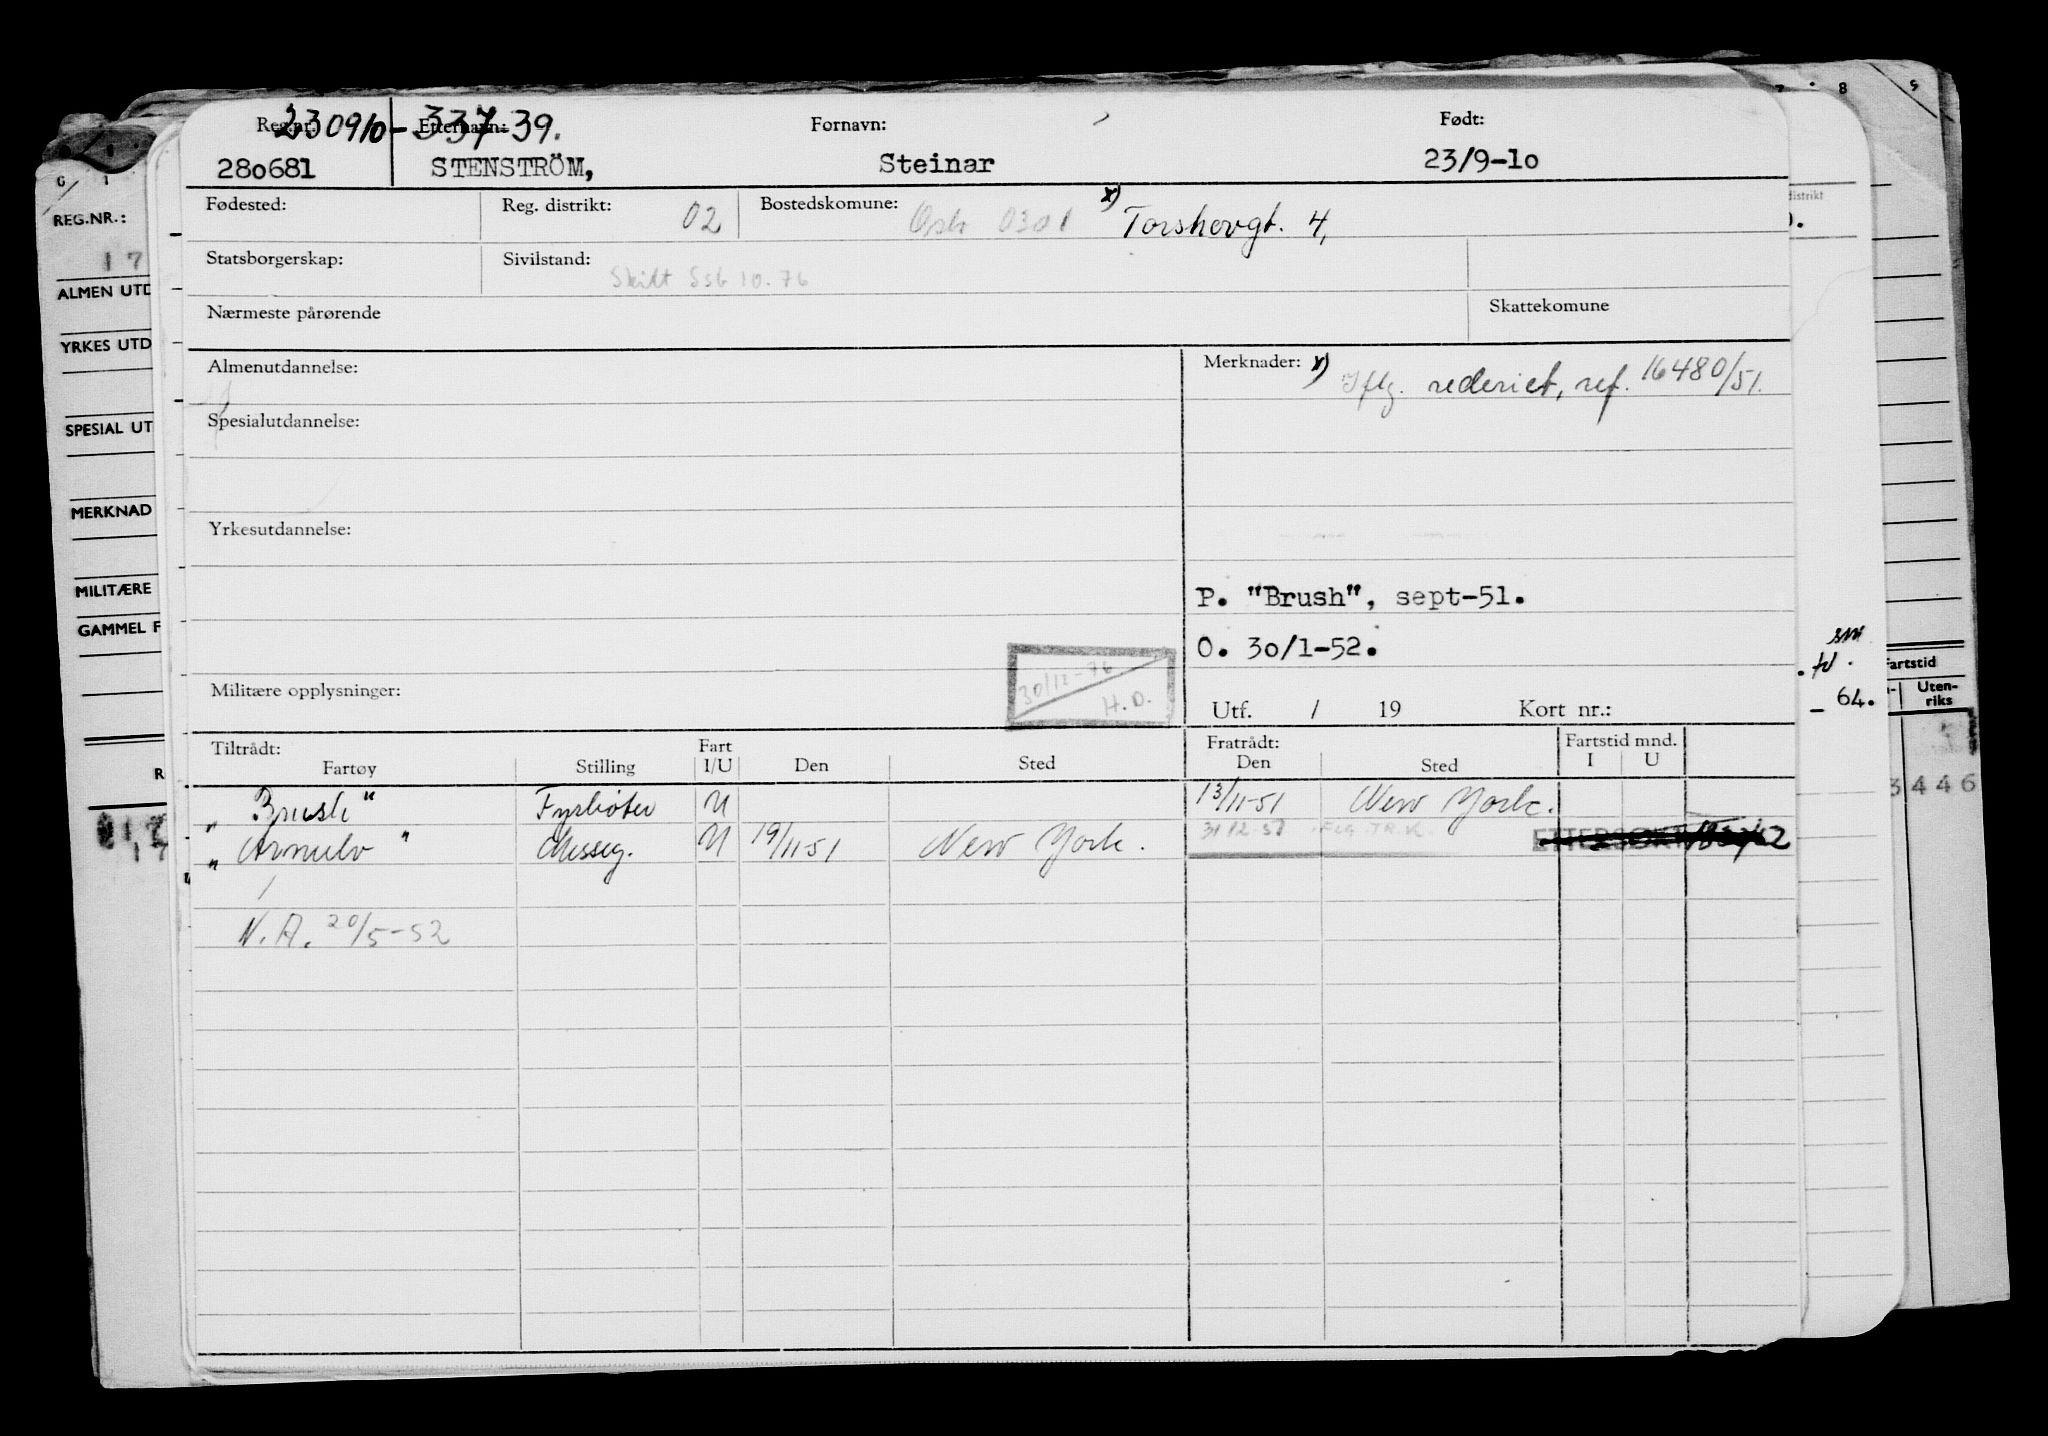 230910-33739.
Reg.nr. Etternavn: Fornavn: Født:
280681 STENSTRÖM, Steinar 23/9-10
Fødested: Reg. distrikt: 02 Bostedskomune: Oslo 0301 x) Torshovgt. 4,
Statsborgerskap: Sivilstand: Skilt Ssb 10.76
Nærmeste pårørende Skattekomune
Almenutdannelse: Merknader: x) Iflg. rederiet, ref. 16480/51.
Spesialutdannelse:
Yrkesutdannelse:
P. "Brush", sept-51.
O. 30/1-52.
30/12-76
H.D.
Militære opplysninger: Utf. / 19 Kort nr.:
Tiltrådt: Fart Fratrådt: Fartstid mnd.
Fartøy Stilling I/U Den Sted Den Sted I U
" Brush " Fyrbøter U 13/11-51 New York.
" Arnulv " Messeg. U 19/11 51 New York. 31/12-51
N.A. 20/5-52
G 1
REG.NR.:
17
ALMEN UTD
YRKES UTD
SPESIAL UT
MERKNAD
MILITÆRE
GAMMEL F
R
17
8 9
distrikt
64.
Fartstid
Uten-
riks
3446